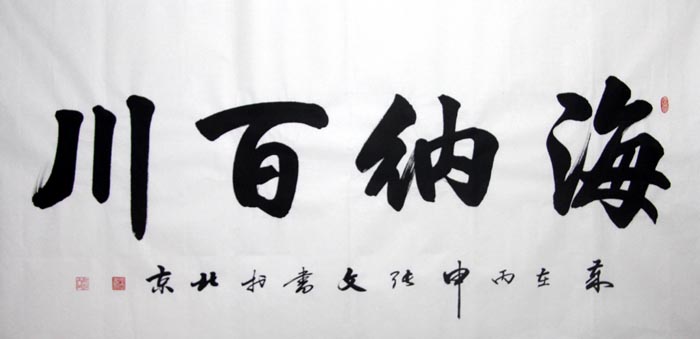 海纳百川
岁在丙申张文书於北京